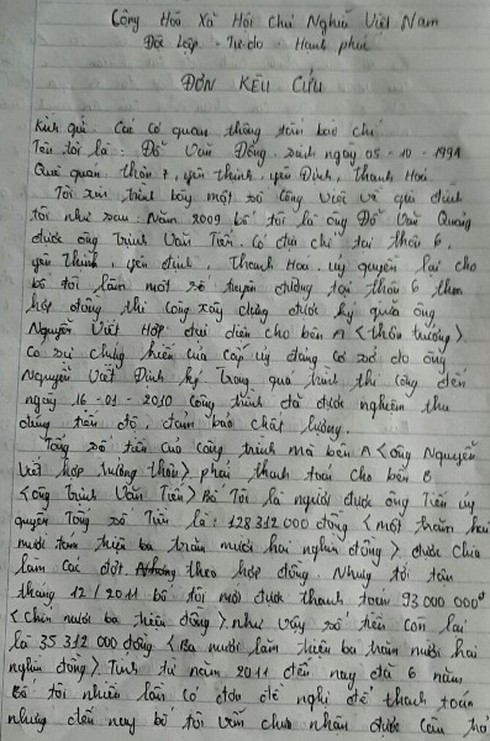 Cộng Hoà Xã Hội Chủ Nghĩa Việt Nam
Độc Lập - Tự do - Hạnh phúc
ĐƠN KÊU CỨU
Kính gửi: Các cơ quan thông tấn báo chí
Tên tôi là: Đỗ Văn Đông. sinh ngày 05-10-1991
Quê quán thôn 7, yên thịnh, yên Định, Thanh Hoá
Tôi xin trình bày một số công việc về gia đình
tôi như sau: Năm 2009 bố tôi là ông Đỗ Văn Quang
được ông Trịnh Văn Tiến. Có địa chỉ tại thôn 6,
yên Thịnh, yên định, Thanh Hoá. uỷ quyền lại cho
bố tôi làm một số tuyến đường tại thôn 6 theo
hợp đồng thi công xây dựng được ký giữa ông
Nguyễn Viết Hợp đại diện cho bên A <thôn trưởng>.
Có sự chứng kiến của cấp uỷ đảng cơ sở do ông
Nguyễn Viết Định ký Trong quá trình thi công đến
ngày 16-01-2010 công trình đã được nghiệm thu
đúng tiến độ, đảm bảo chất lượng.
Tổng số tiền của công trình mà bên A <ông Nguyễn
Viết hợp trưởng thôn> phải thanh toán cho bên B
<ông Trịnh Văn Tiến> Bố Tôi là người được ông Tiến uỷ
quyền Tổng số Tiền là: 128 312 000 đồng <một trăm hai
mươi tám triệu ba trăm mười hai nghìn đồng> được chia
làm các đợt theo hợp đồng. Nhưng tới tận
tháng 12/2011 bố tôi mới được thanh toán 93 000 000đ
<chín mươi ba triệu đồng>. như vậy số tiền còn lại
là 35 312 000 đồng <Ba mươi lăm triệu ba trăm mười hai
nghìn đồng>. Tính từ năm 2011 đến nay đã 6 năm
Bố tôi nhiều lần có đơn đề nghị để thanh toán
nhưng đến nay bố tôi vẫn chưa nhận được câu trả